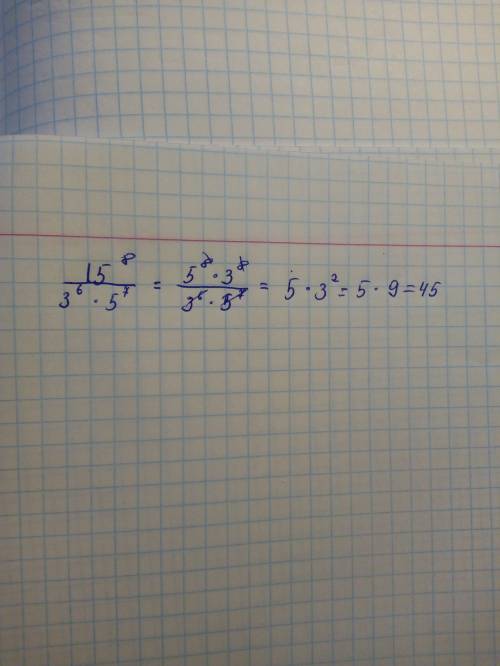 15⁸ / 3⁶ · 5⁷ = 5⁸ · 3⁸ / 3⁶ · 5⁷ = 5 · 3² = 5 · 9 = 45